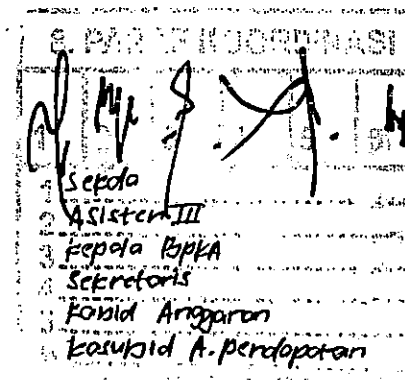 B. PARAF KOORDINASI
Sekda
Asisten III
Kepala BPKA
Sekretaris
Kabid Anggaran
Kasubid A. pendapatan